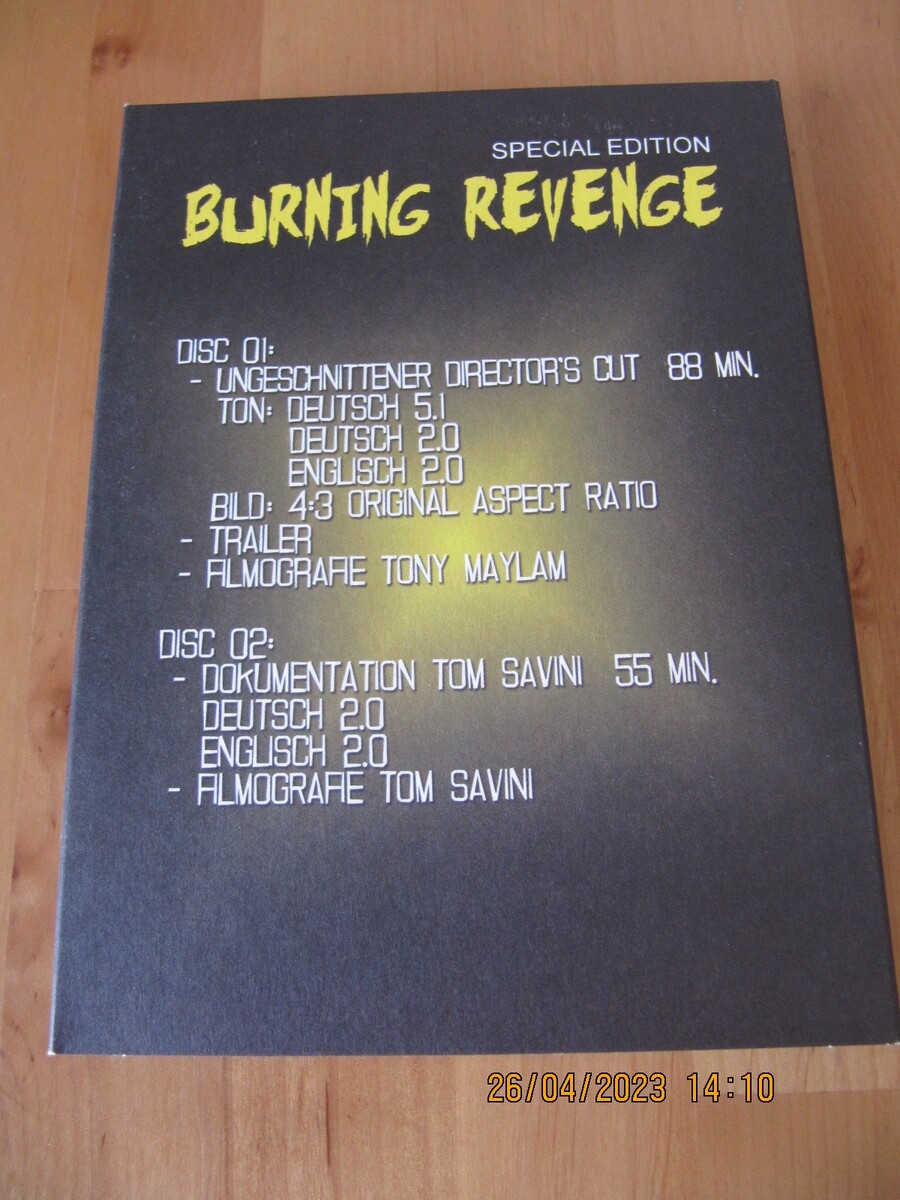 SPECIAL EDITION
BURNING REVENGE
DISC 01:
- UNGESCHNITTENER DIRECTOR'S CUT 88 MIN.
TON: DEUTSCH 5.1
DEUTSCH 2.0
ENGLISCH 2.0
BILD: 4:3 ORIGINAL ASPECT RATIO
- TRAILER
- FILMOGRAFIE TONY MAYLAM
DISC 02:
- DOKUMENTATION TOM SAVINI 55 MIN.
DEUTSCH 2.0
ENGLISCH 2.0
- FILMOGRAFIE TOM SAVINI
26/04/2023 14:10